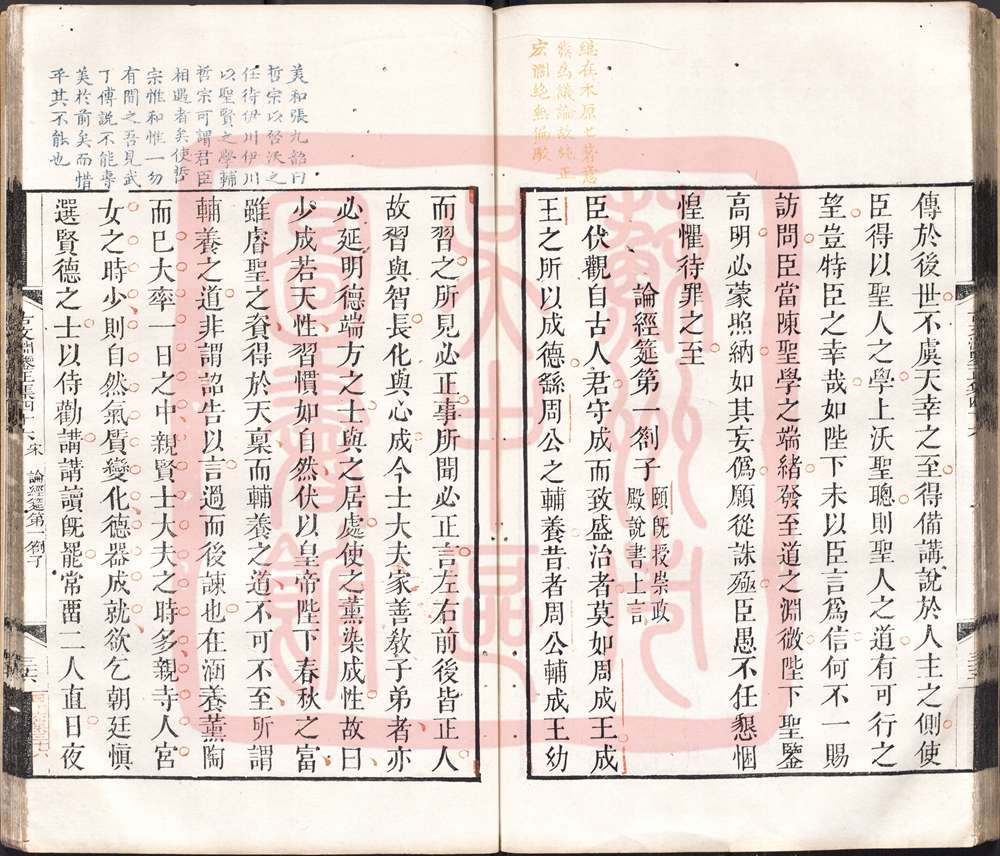 繼在本原芒著意
宏淵絕無偏駁
傳於後世不虞天幸之至得備講說於人主之側使
臣得以聖人之學上沃聖聰則聖人之道有可行之
望豈特臣之幸哉如陛下未以臣言爲信何不一賜
訪問臣當陳聖學之端緒發至道之淵微陛下聖鑒
高明必蒙照納如其妄僞願從誅殛臣愚不任懇悃
惶懼待罪之至
論經筵第一劄子 頤旣授崇政
殿說書上言
臣伏觀自古人君守成而致盛治者莫如周成王成
王之所以成德繇周公之輔養昔者周公輔成王幼
美和張九韶曰
哲宗以啓沃之
任待伊川伊川
以聖賢之學輔
哲宗可謂君臣
相遇者矣使哲
宗惟和惟一勿
有間之吾見武
丁傅說不能專
美於前矣而惜
乎其不能也
而習之所見必正事所聞必正言左右前後皆正人
故習與智長化與心成今士大夫家善敎子弟者亦
必延明德端方之士與之居處使之薰染成性故曰
少成若天性習慣如自然伏以皇帝陛下春秋之富
雖睿聖之資得於天稟而輔養之道不可不至所謂
輔養之道非謂詔告以言過而後諫也在涵養薰陶
而已大率一日之中親賢士大夫之時多親寺人宮
女之時少則自然氣質變化德器成就欲乞朝廷愼
選賢德之士以侍勸講講讀旣罷常畱二人直日夜
宋 論經筵第一劄子